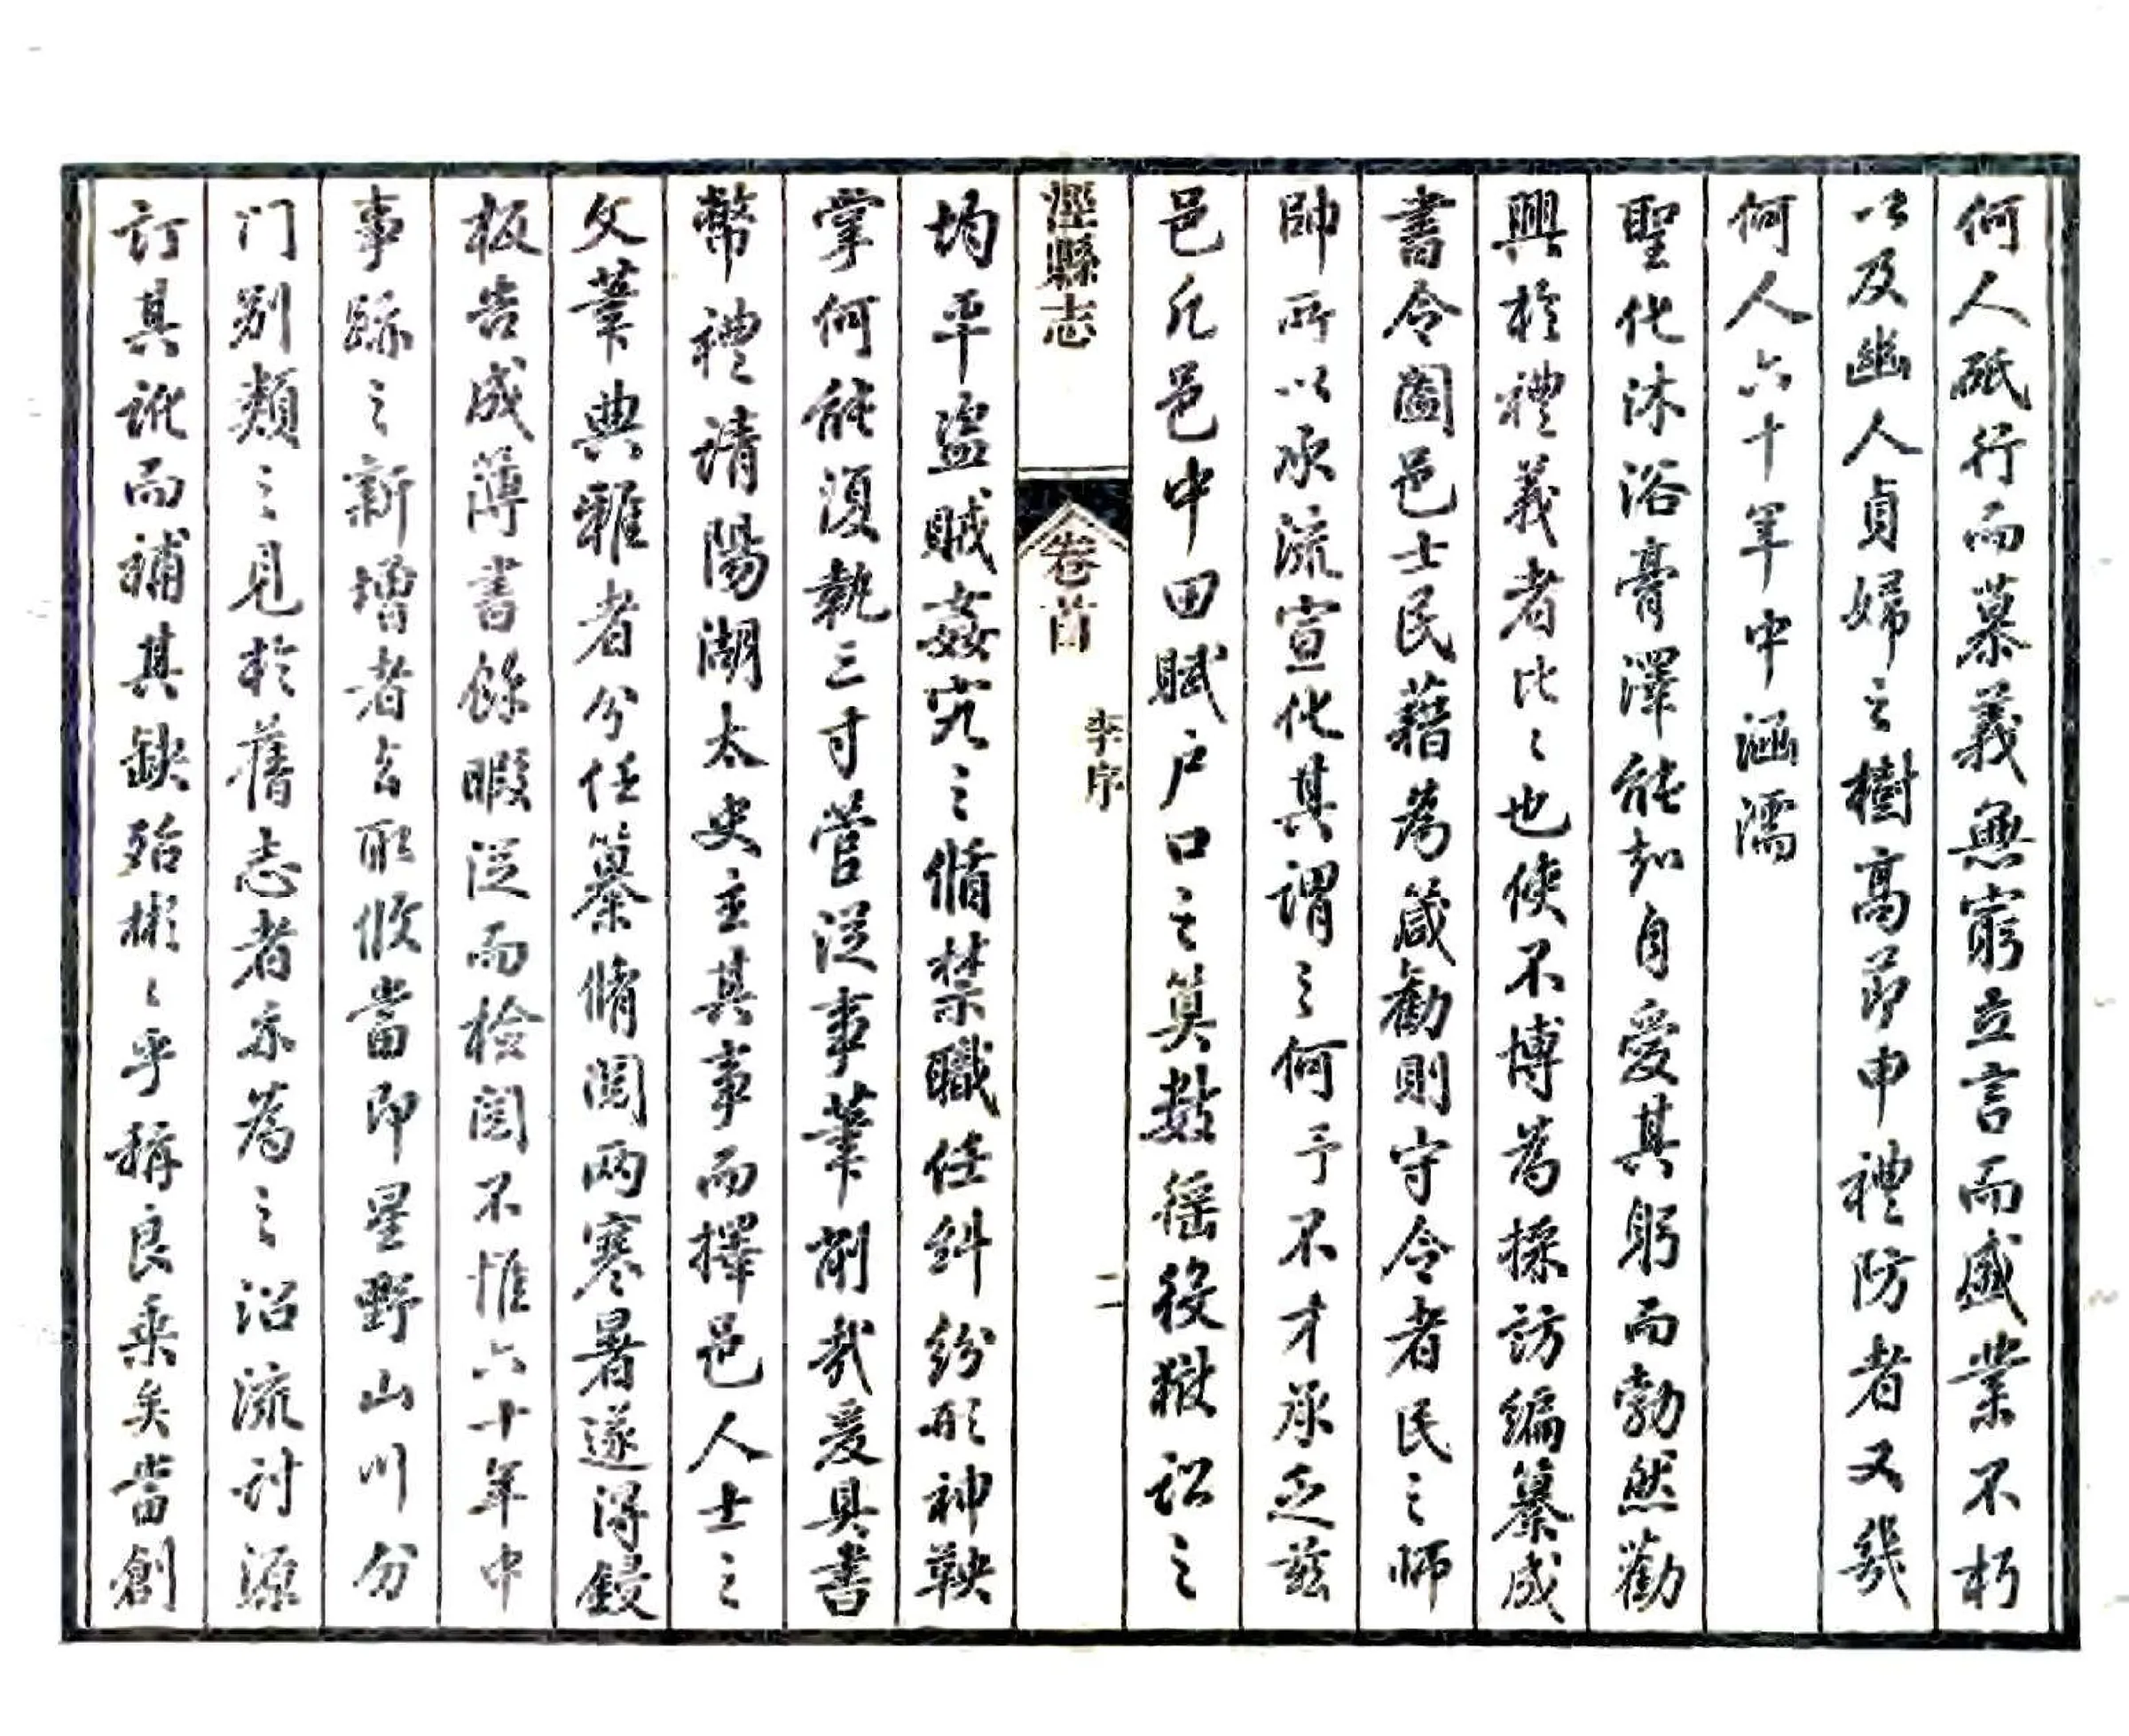 何人砥行而慕義無窮立言而盛業不朽
以及幽人貞婦之樹高節申禮防者又幾
何人六十年中涵濡
聖化沐浴膏澤能知自愛其躬而勃然勸
興於禮義者比〻也使不博為採訪編纂成
書令闔邑士民藉為箴勸則守令者民之師
帥所以承流宣化其謂之何予不才承乏茲
邑凡邑中田賦户口之莫數徭役獄訟之
涇縣志
卷首
李序
二
均平盗賊姦宄之脩禁職任糾紛形神鞅
掌何能復執三寸管從事筆削哉爰具書
幣禮請陽湖太史主其事而擇邑人士之
文筆典雅者分任纂脩閲兩寒暑遂得鋟
板告成薄書餘暇從而檢閲不惟六十年中
事蹟之新增者言取攸當即星野山川分
门别類之見於舊志者亦為之沿流討源
訂其訛而補其缺殆彬〻乎稱良乘矣當創